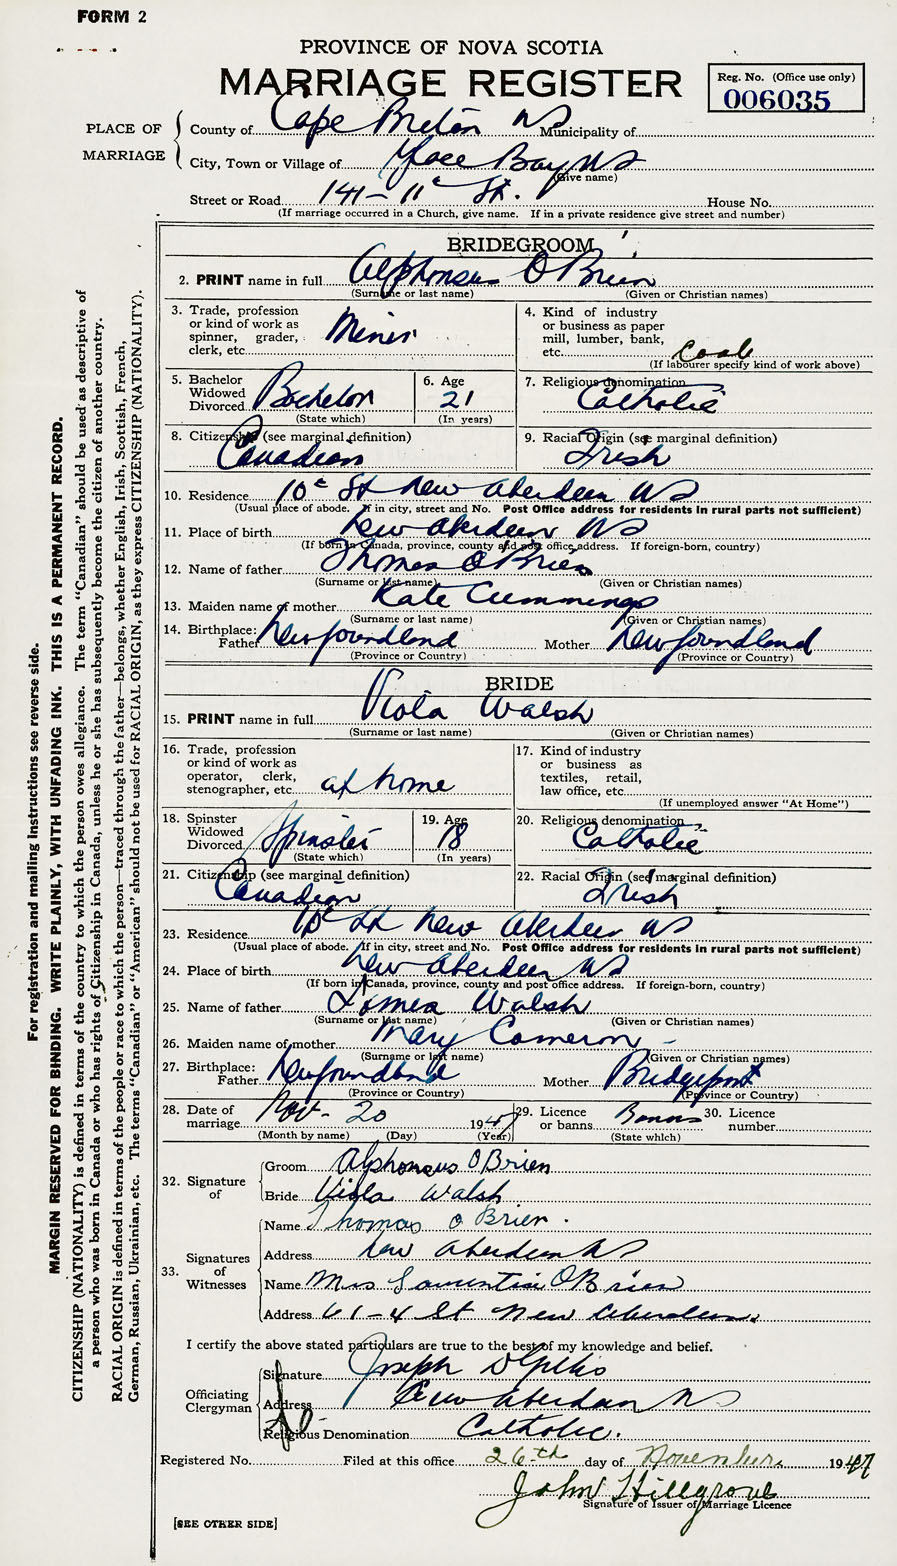 FORM 2
PROVINCE OF NOVA SCOTIA
MARRIAGE REGISTER
Reg. No. (Office use only)
006035
PLACE OF MARRIAGE
County of Cape Breton NS Municipality of
City, Town or Village of Glace Bay NS
(Give name)
Street or Road 141 - 11th St. House No.
(If marriage occurred in a Church, give name. If in a private residence give street and number)
BRIDEGROOM
2. PRINT name in full Alphonsus O Brien
(Surname or last name) (Given or Christian names)
3. Trade, profession or kind of work as spinner, grader, clerk, etc. Miner
4. Kind of industry or business as paper mill, lumber, bank, etc. Coal
(If labourer specify kind of work above)
5. Bachelor Widowed Divorced Bachelor
(State which)
6. Age 21
(In years)
7. Religious denomination Catholic
8. Citizenship (see marginal definition) Canadian
9. Racial Origin (see marginal definition) Irish
10. Residence 10th St New Aberdeen NS
(Usual place of abode. If in city, street and No. Post Office address for residents in rural parts not sufficient)
11. Place of birth New Aberdeen NS
(If born in Canada, province, county and post office address. If foreign-born, country)
12. Name of father Thomas O Brien
(Surname or last name) (Given or Christian names)
13. Maiden name of mother Kate Cummings
(Surname or last name) (Given or Christian names)
14. Birthplace: Father Newfoundland Mother Newfoundland
(Province or Country) (Province or Country)
BRIDE
15. PRINT name in full Viola Walsh
(Surname or last name) (Given or Christian names)
16. Trade, profession or kind of work as operator, clerk, stenographer, etc. at home
17. Kind of industry or business as textiles, retail, law office, etc.
(If unemployed answer "At Home")
18. Spinster Widowed Divorced Spinster
(State which)
19. Age 18
(In years)
20. Religious denomination Catholic
21. Citizenship (see marginal definition) Canadian
22. Racial Origin (see marginal definition) Irish
23. Residence St New Aberdeen NS
(Usual place of abode. If in city, street and No. Post Office address for residents in rural parts not sufficient)
24. Place of birth New Aberdeen NS
(If born in Canada, province, county and post office address. If foreign-born, country)
25. Name of father James Walsh
(Surname or last name) (Given or Christian names)
26. Maiden name of mother Mary Cameron
(Surname or last name) (Given or Christian names)
27. Birthplace: Father Newfoundland Mother Bridgeport
(Province or Country) (Province or Country)
28. Date of marriage Nov- 20 1947
(Month by name) (Day) (Year)
29. Licence or banns Banns
(State which)
30. Licence number
32. Signature of
Groom Alphonsus O Brien
Bride Viola Walsh
33. Signatures of Witnesses
Name Thomas O Brien.
Address New Aberdeen NS
Name Mrs O Brien
Address 61-4 St New Aberdeen.
I certify the above stated particulars are true to the best of my knowledge and belief.
Officiating Clergyman
Signature Joseph D Gillis
Address New Aberdeen NS
Religious Denomination Catholic.
Registered No. Filed at this office 26th day of November 1947
John Hillgrove
Signature of Issuer of Marriage Licence
[SEE OTHER SIDE]
For registration and mailing instructions see reverse side.
MARGIN RESERVED FOR BINDING. WRITE PLAINLY, WITH UNFADING INK. THIS IS A PERMANENT RECORD.
CITIZENSHIP (NATIONALITY) is defined in terms of the country to which the person owes allegiance. The term "Canadian" should be used as descriptive of
a person who was born in Canada or who has rights of Citizenship in Canada, unless he or she has subsequently become the citizen of another country.
RACIAL ORIGIN is defined in terms of the people or race to which the person—traced through the father—belongs, whether English, Irish, Scottish, French,
German, Russian, Ukrainian, etc. The terms "Canadian" or "American" should not be used for RACIAL ORIGIN, as they express CITIZENSHIP (NATIONALITY).